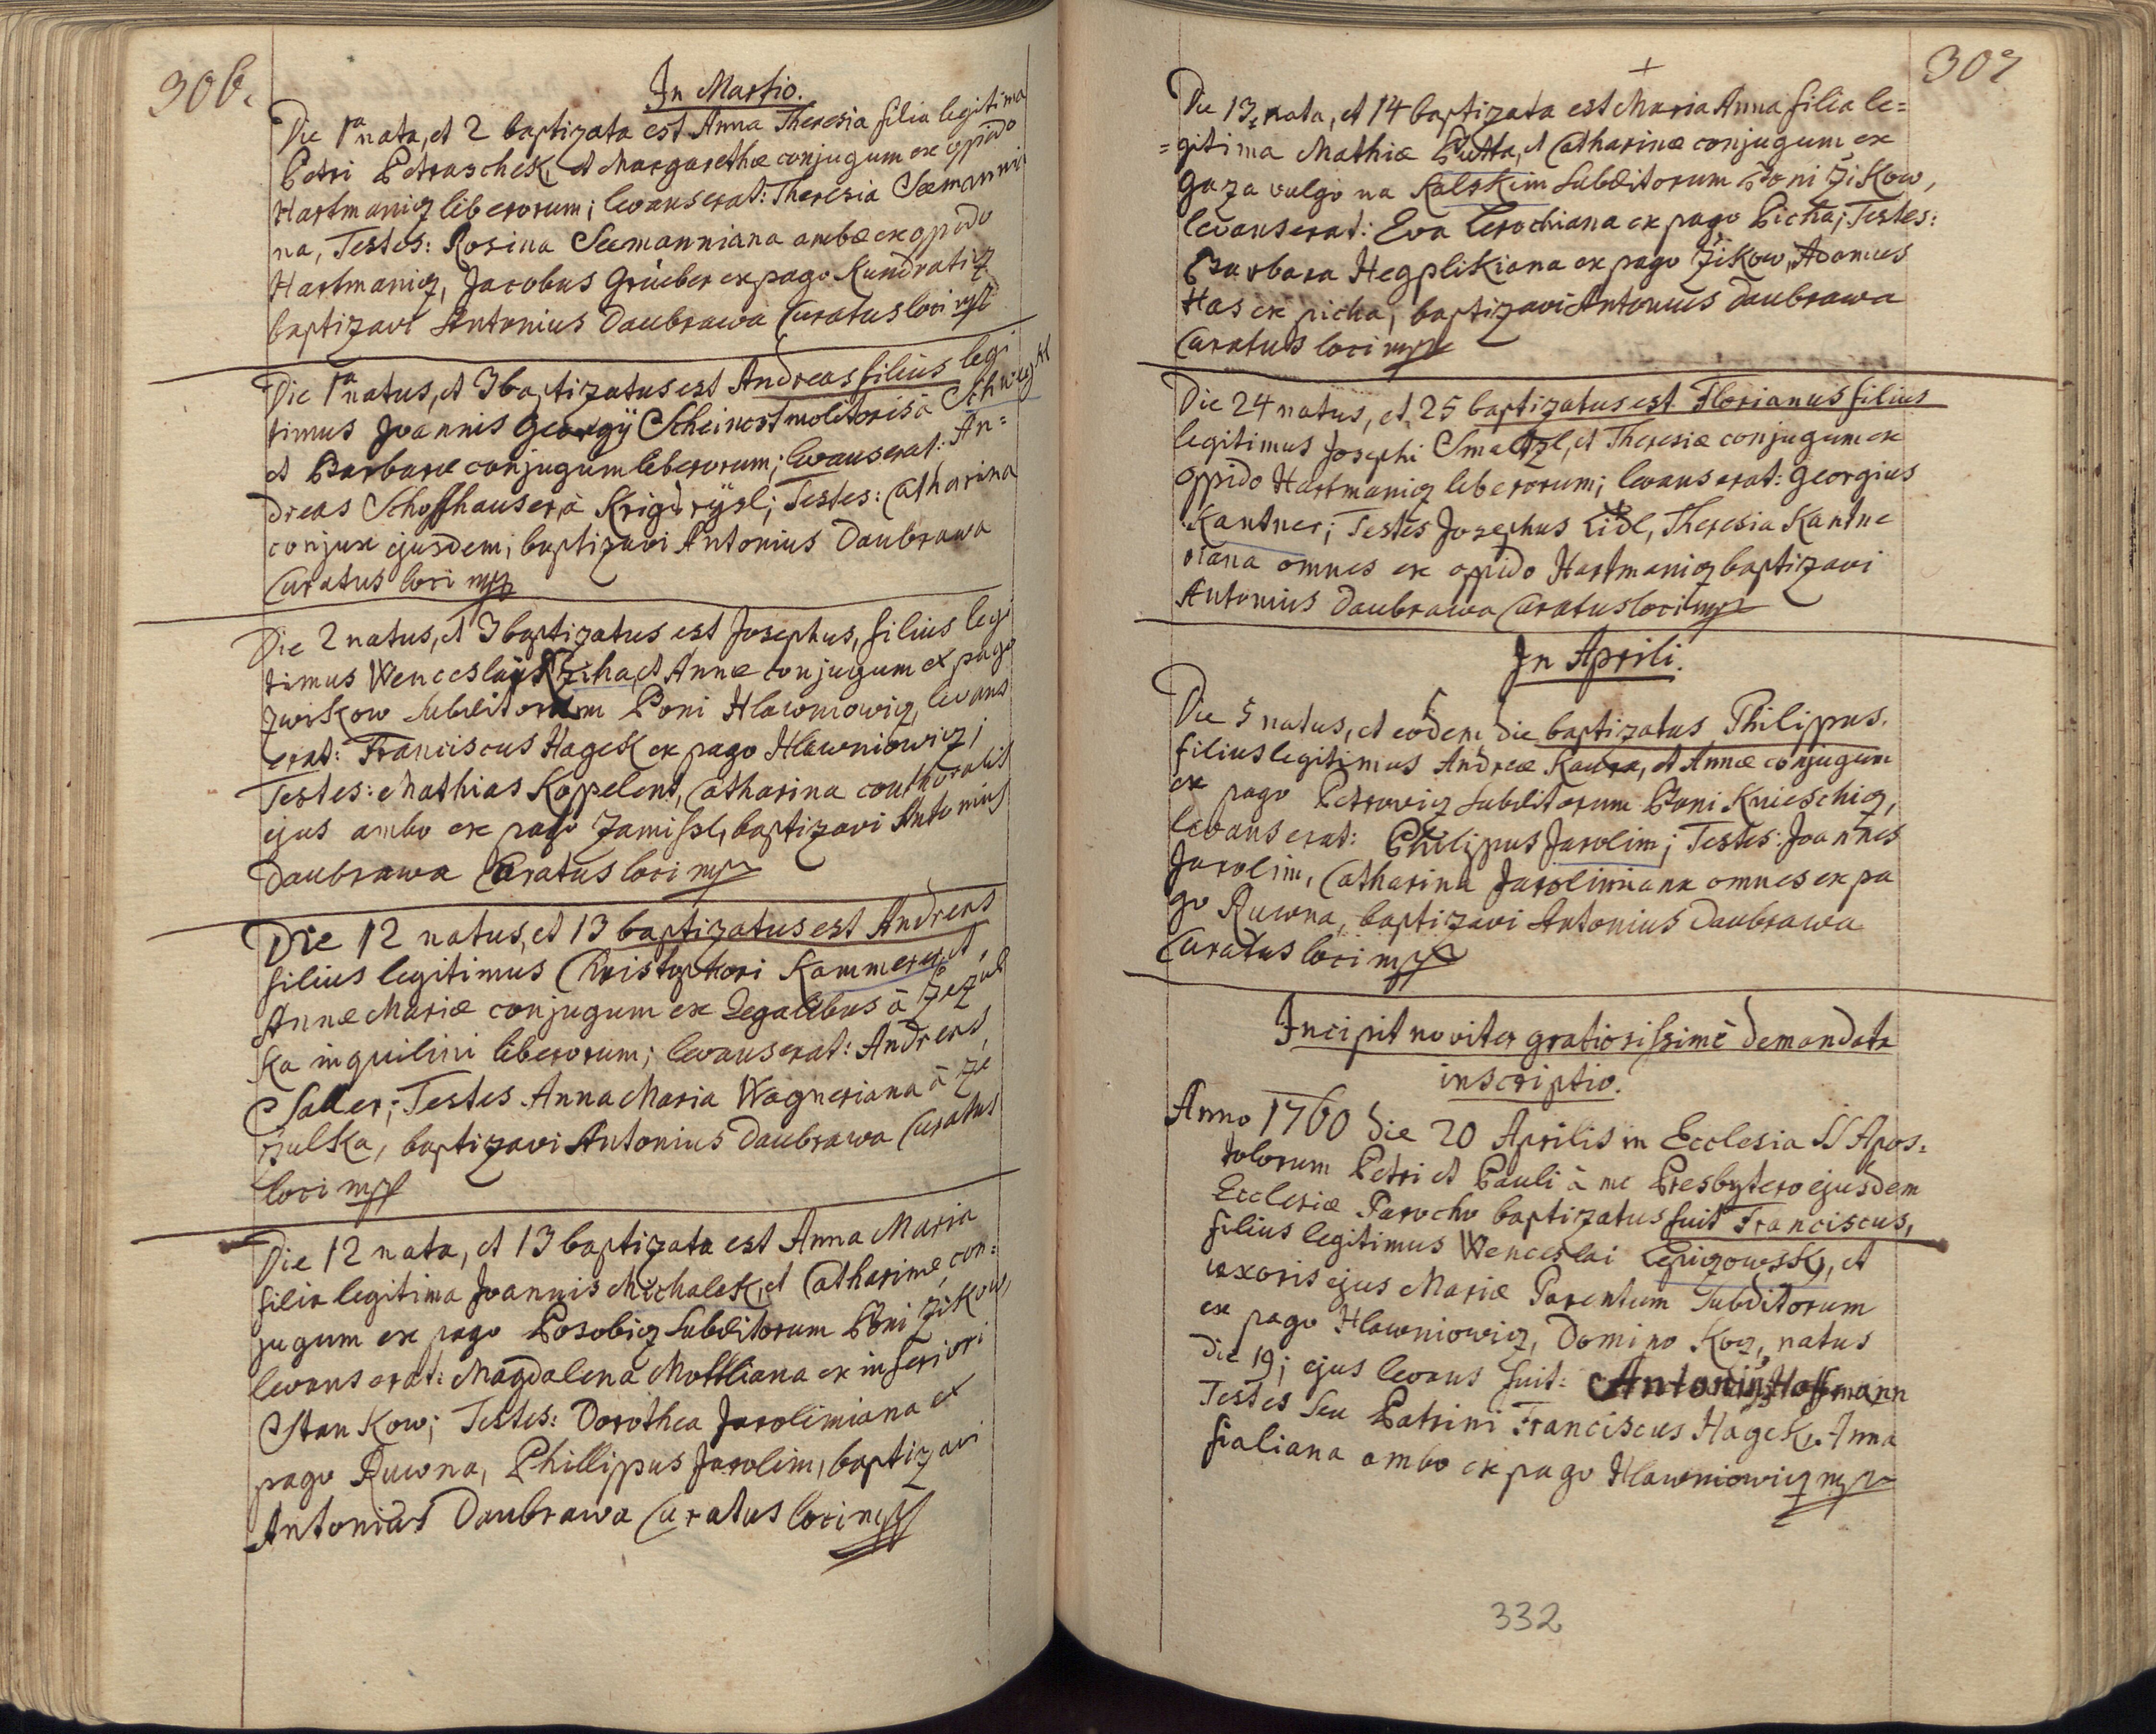 306.
In Martio.
Die 1a nata, et 2 baptizata est Anna Theresia filia legitima
Petri Petraschek, et Margarethæ conjugum ex oppido
Hartmanicz liberorum; levans erat: Theresia Seemannia
na, Testes: Rosina Seemanniana ambæ ex oppido
Hartmanicz, Jacobus Grueber ex pago Kundraticz
baptizavi Antonius Daubrawa Curatus loci mpr
Die 1a natus, et 3 baptizatus est Andreas filius legi
timus Joannis Georgÿ Scheinost molitoris à
et Barbaræ conjugum liberorum; levans erat: An=
dreas Schoffhauser à; Testes: Catharina
conjux ejusdem; baptizavi Antonius Daubrawa
Curatus loci mpr
Die 2 natus, et 3 baptizatus est Josephus, filius leg
timus Wenceslai Rziha, et Annæ conjugum ex pago
Zwiskow Subditorum Boni Hlawniowicz, levans
erat: Franciscus Hagek ex pago Hlawniowicz;
Testes: Mathias Kopelent, Catharina conthoralis
ejus ambo ex pago Zamissl, baptizavi Antonius
Daubrawa Curatus loci mpr
Die 12 natus, et 13 baptizatus est Andreas
filius legitimus Christophori Kammerer, et
Annæ Mariæ conjugum ex Regalibus à Zezul
ka inquilini liberorum; levans erat: Andreas
Saller; Testes. Anna Maria Wagneriana à Ze
zulka, baptizavi Antonius Daubrawa Curatus
loci mpr
Die 12 nata, et 13 baptizata est Anna Maria
filia legitima Joannis Michalek, et Catharinæ con=
jugum ex pago Posobicz Subditorum Boni Zikow,
levans erat: Magdalena Mottliana ex inferiori
Stankow; Testes: Dorothea Jarolimiana ex
pago Ruwna, Phillippus Jarolim, baptizavi
Antonius Daubrawa Curatus loci mpr
307
Die 13 nata, et 14 baptizata est Maria Anna filia le=
=gitima Mathiæ Putta, et Catharinæ conjugum ex
Gaza vulgo na Kalskim Subditorum Boni Zikow,
levans erat: Eva Lerochiana ex pago Picha; Testes:
Barbara Hegplikiana ex pago Zikow, Adamus
Has ex picha, baptizavi Antonius Daubrawa
Curatus loci mpr
Die 24 natus, et 25 baptizatus est Florianus filius
legitimus Josephi Smeltzl, et Theresiæ conjugum ex
oppido Hartmanicz liberorum; levans erat: Georgius
Kantner; Testes Josephus Lidl, Theresia Kantne
riana omnes ex oppido Hartmanicz baptizavi
Antonius Daubrawa Curatus loci mpr
In Aprili.
Die 5 natus, et eodem die baptizatus Philippus.
filius legitimus Andreæ Kaura, et Annæ conjugum
ex pago Petrowicz Subditorum Boni Knieschicz,
levans erat: Philippus Jarolim; Testes: Joannes
Jarolim, Catharina Jarolimiana omnes ex pa
go Ruwna, baptizavi Antonius Daubrawa
Curatus loci mpr
Incipit noviter gratiosissimè demandata
inscriptio.
Anno 1760 die 20 Aprilis in Ecclesia SS Apos=
tolorum Petri et Pauli à me Presbytero ejusdem
Ecclesiæ Parocho baptizatus fuit Franciscus,
filius legitimus Wenceslai Lepizowsky, et
uxoris ejus Mariæ Parentum Subditorum
ex pago Hlawniowicz, Domino Kocz, natus
die 19; ejus levans fuit: Antonius Hoffmann
Testes seu Patrini Franciscus Hagek, Anna
fialiana ambo ex pago Hlawniowicz mpr
332